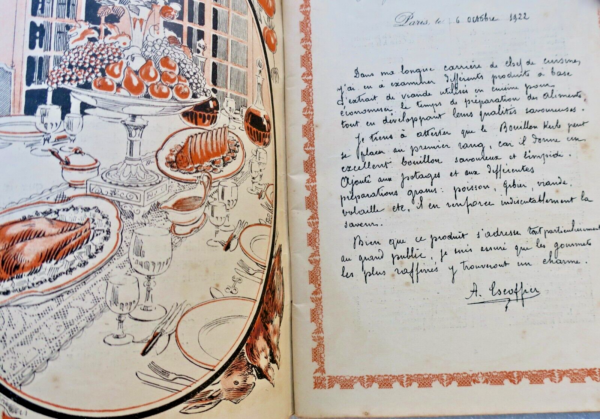 Paris, le : 6 octobre 1922
Dans ma longue carrière de chef de cuisine,
j'ai eu à examiner différents produits à base
d'extrait de viande utilisés en cuisine pour
économiser le temps de préparation des aliments,
tout en développant leurs qualités savoureuses.
Je tiens à attester que le Bouillon Kub peut
se placer au premier rang, car il donne un
excellent bouillon savoureux et limpide.
Ajouté aux potages et aux différentes
préparations : poisson, gibier, viande,
volailles etc, il en renforce indiscutablement la
saveur.
Bien que ce produit s'adresse tout particulièrement
au grand public, je suis que les gourmets
les plus raffinés y trouveront un charme.
A. Escoffier